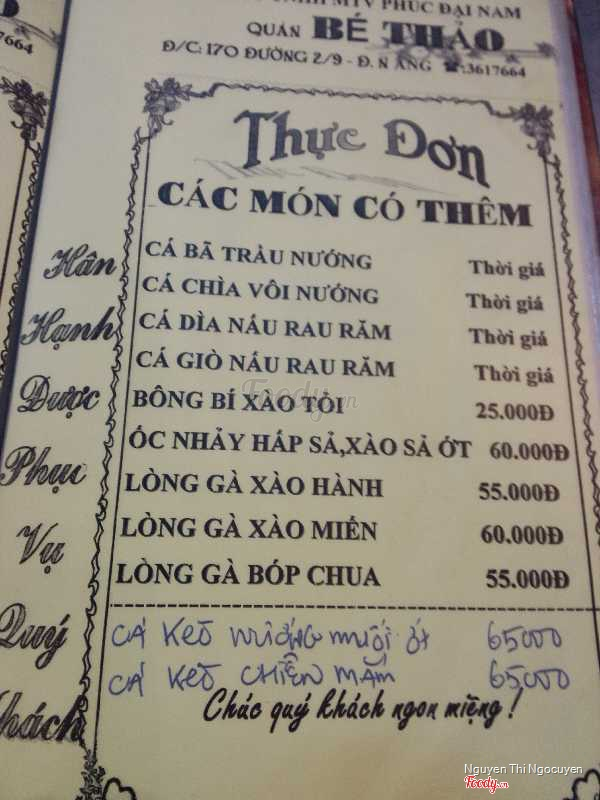 MTV PHÚC ĐẠI NAM
QUÁN BÉ THẢO
Đ/C: 170 ĐƯỜNG 2/9 - Đ.N ANG ☎:3617664
7664
Thực Đơn
CÁC MÓN CÓ THÊM
CÁ BÃ TRÀU NƯỚNG Thời giá
CÁ CHÌA VÔI NƯỚNG Thời giá
CÁ DÌA NẤU RAU RĂM Thời giá
CÁ GIÒ NẤU RAU RĂM Thời giá
BÔNG BÍ XÀO TỎI 25.000Đ
ỐC NHẢY HẤP SẢ,XÀO SẢ ỚT 60.000Đ
LÒNG GÀ XÀO HÀNH 55.000Đ
LÒNG GÀ XÀO MIẾN 60.000Đ
LÒNG GÀ BÓP CHUA 55.000Đ
CÁ KEO NƯỚNG MUỐI ỚT 65000
CÁ KEO CHIÊN MẮM 65000
Chúc quý khách ngon miệng !
Hân
Hạnh
Được
Phục
Vụ
Quý
Khách
Foody.vn
Nguyen Thi Ngocuyen
Foody.vn